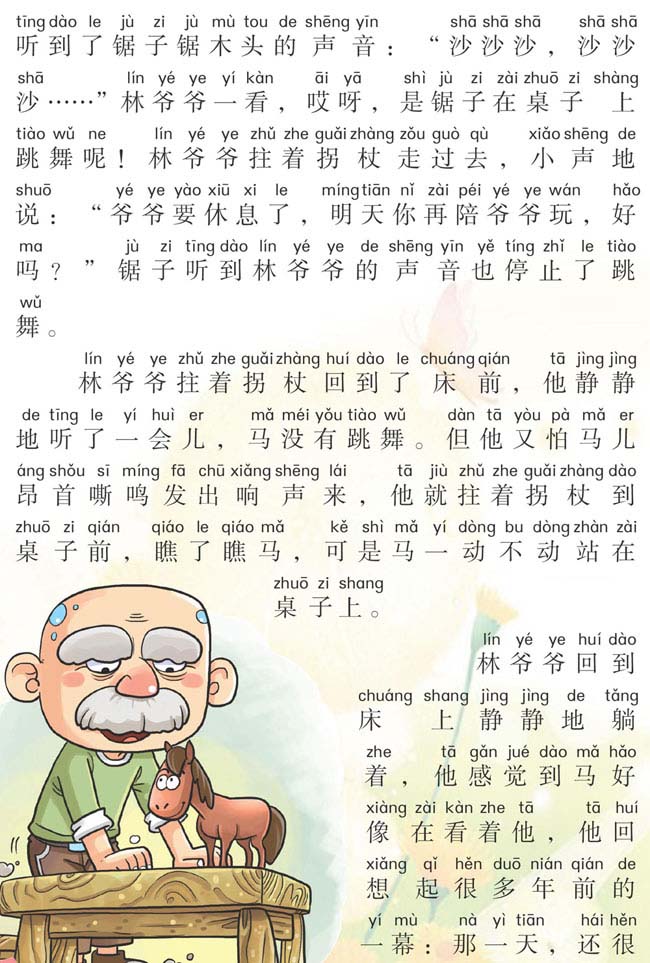 tīng dào le jù zi jù mù tou de shēng yīn shā shā shā shā shā
听到了锯子锯木头的声音：“沙沙沙，沙沙
shā lín yé ye yí kàn āi yā shì jù zi zài zhuō zi shàng
沙……”林爷爷一看，哎呀，是锯子在桌子上
tiào wǔ ne lín yé ye zhǔ zhe guǎi zhàng zǒu guò qù xiǎo shēng de
跳舞呢！林爷爷拄着拐杖走过去，小声地
shuō yé ye yào xiū xi le míng tiān nǐ zài péi yé ye wán hǎo
说：“爷爷要休息了，明天你再陪爷爷玩，好
ma jù zi tīng dào lín yé ye de shēng yīn yě tíng zhǐ le tiào
吗？”锯子听到林爷爷的声音也停止了跳
wǔ
舞。
lín yé ye zhǔ zhe guǎi zhàng huí dào le chuáng qián tā jìng jìng
林爷爷拄着拐杖回到了床前，他静静
de tīng le yí huì er mǎ méi yǒu tiào wǔ dàn tā yòu pà mǎ er
地听了一会儿，马没有跳舞。但他又怕马儿
áng shǒu sī míng fā chū xiǎng shēng lái tā jiù zhǔ zhe guǎi zhàng dào
昂首嘶鸣发出响声来，他就拄着拐杖到
zhuō zi qián qiáo le qiáo mǎ kě shì mǎ yí dòng bu dòng zhàn zài
桌子前，瞧了瞧马，可是马一动不动站在
zhuō zi shang
桌子上。
lín yé ye huí dào
林爷爷回到
chuáng shang jìng jìng de tǎng
床上静静地躺
zhe tā gǎn jué dào mǎ hǎo
着，他感觉到马好
xiàng zài kàn zhe tā tā huí
像在看着他，他回
xiǎng qǐ hěn duō nián qián de
想起很多年前的
yí mù nà yì tiān hái hěn
一幕：那一天，还很